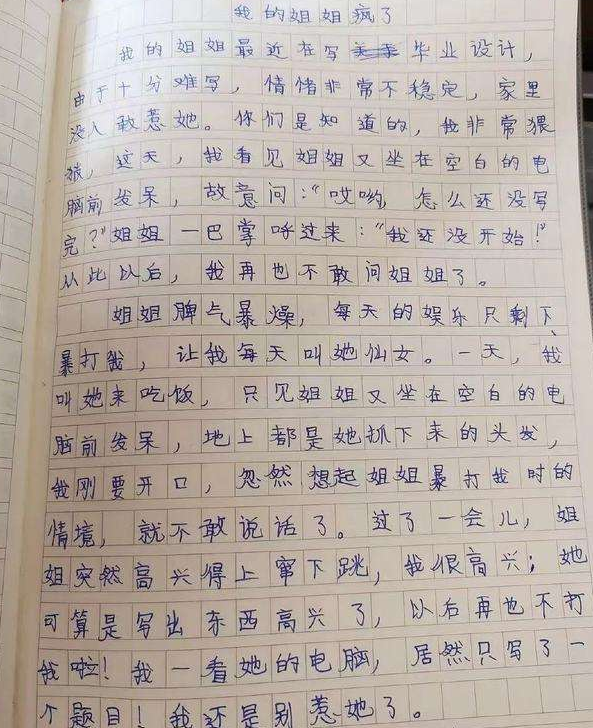 我的姐姐疯了
我的姐姐最近在写毕业设计，
由于十分难写，情绪非常不稳定，家里
没人敢惹她。你们是知道的，我非常猥
猥，这天，我看见姐姐又坐在空白的电
脑前发呆，故意问：“哎哟，怎么还没写
完？”姐姐一巴掌呼过来：“我还没开始！”
从此以后，我再也不敢问姐姐了。
姐姐脾气暴燥，每天的娱乐只剩下
暴打我，让我每天叫她仙女。一天，我
叫她来吃饭，只见姐姐又坐在空白的电
脑前发呆，地上都是她抓下来的头发，
我刚要开口，忽然想起姐姐暴打我时的
情境，就不敢说话了。过了一会儿，姐
姐突然高兴得上窜下跳，我很高兴；她
可算是写出东西高兴了，以后再也不打
我啦！我一看她的电脑，居然只写了一
个题目！我还是别惹她了。